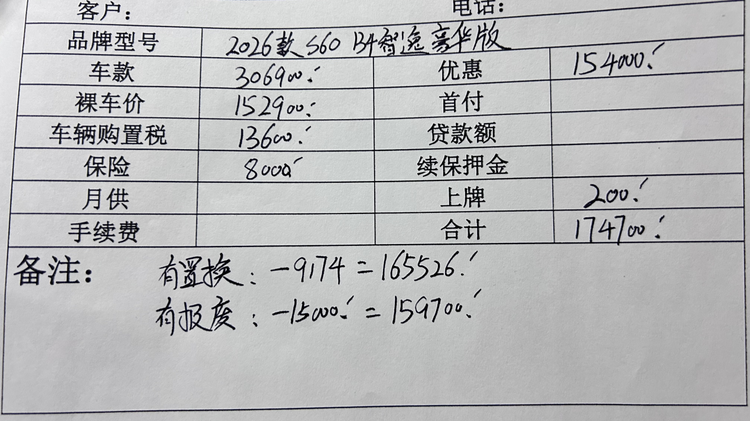 客户： 电话：
品牌型号 2026款 S60 B4智逸豪华版
车款 306900 优惠 154000
裸车价 152900 首付
车辆购置税 13600 贷款额
保险 8000 续保押金
月供 上牌 200
手续费 合计 174700
备注： 有置换：-9174=165526
有报废：-15000=159700